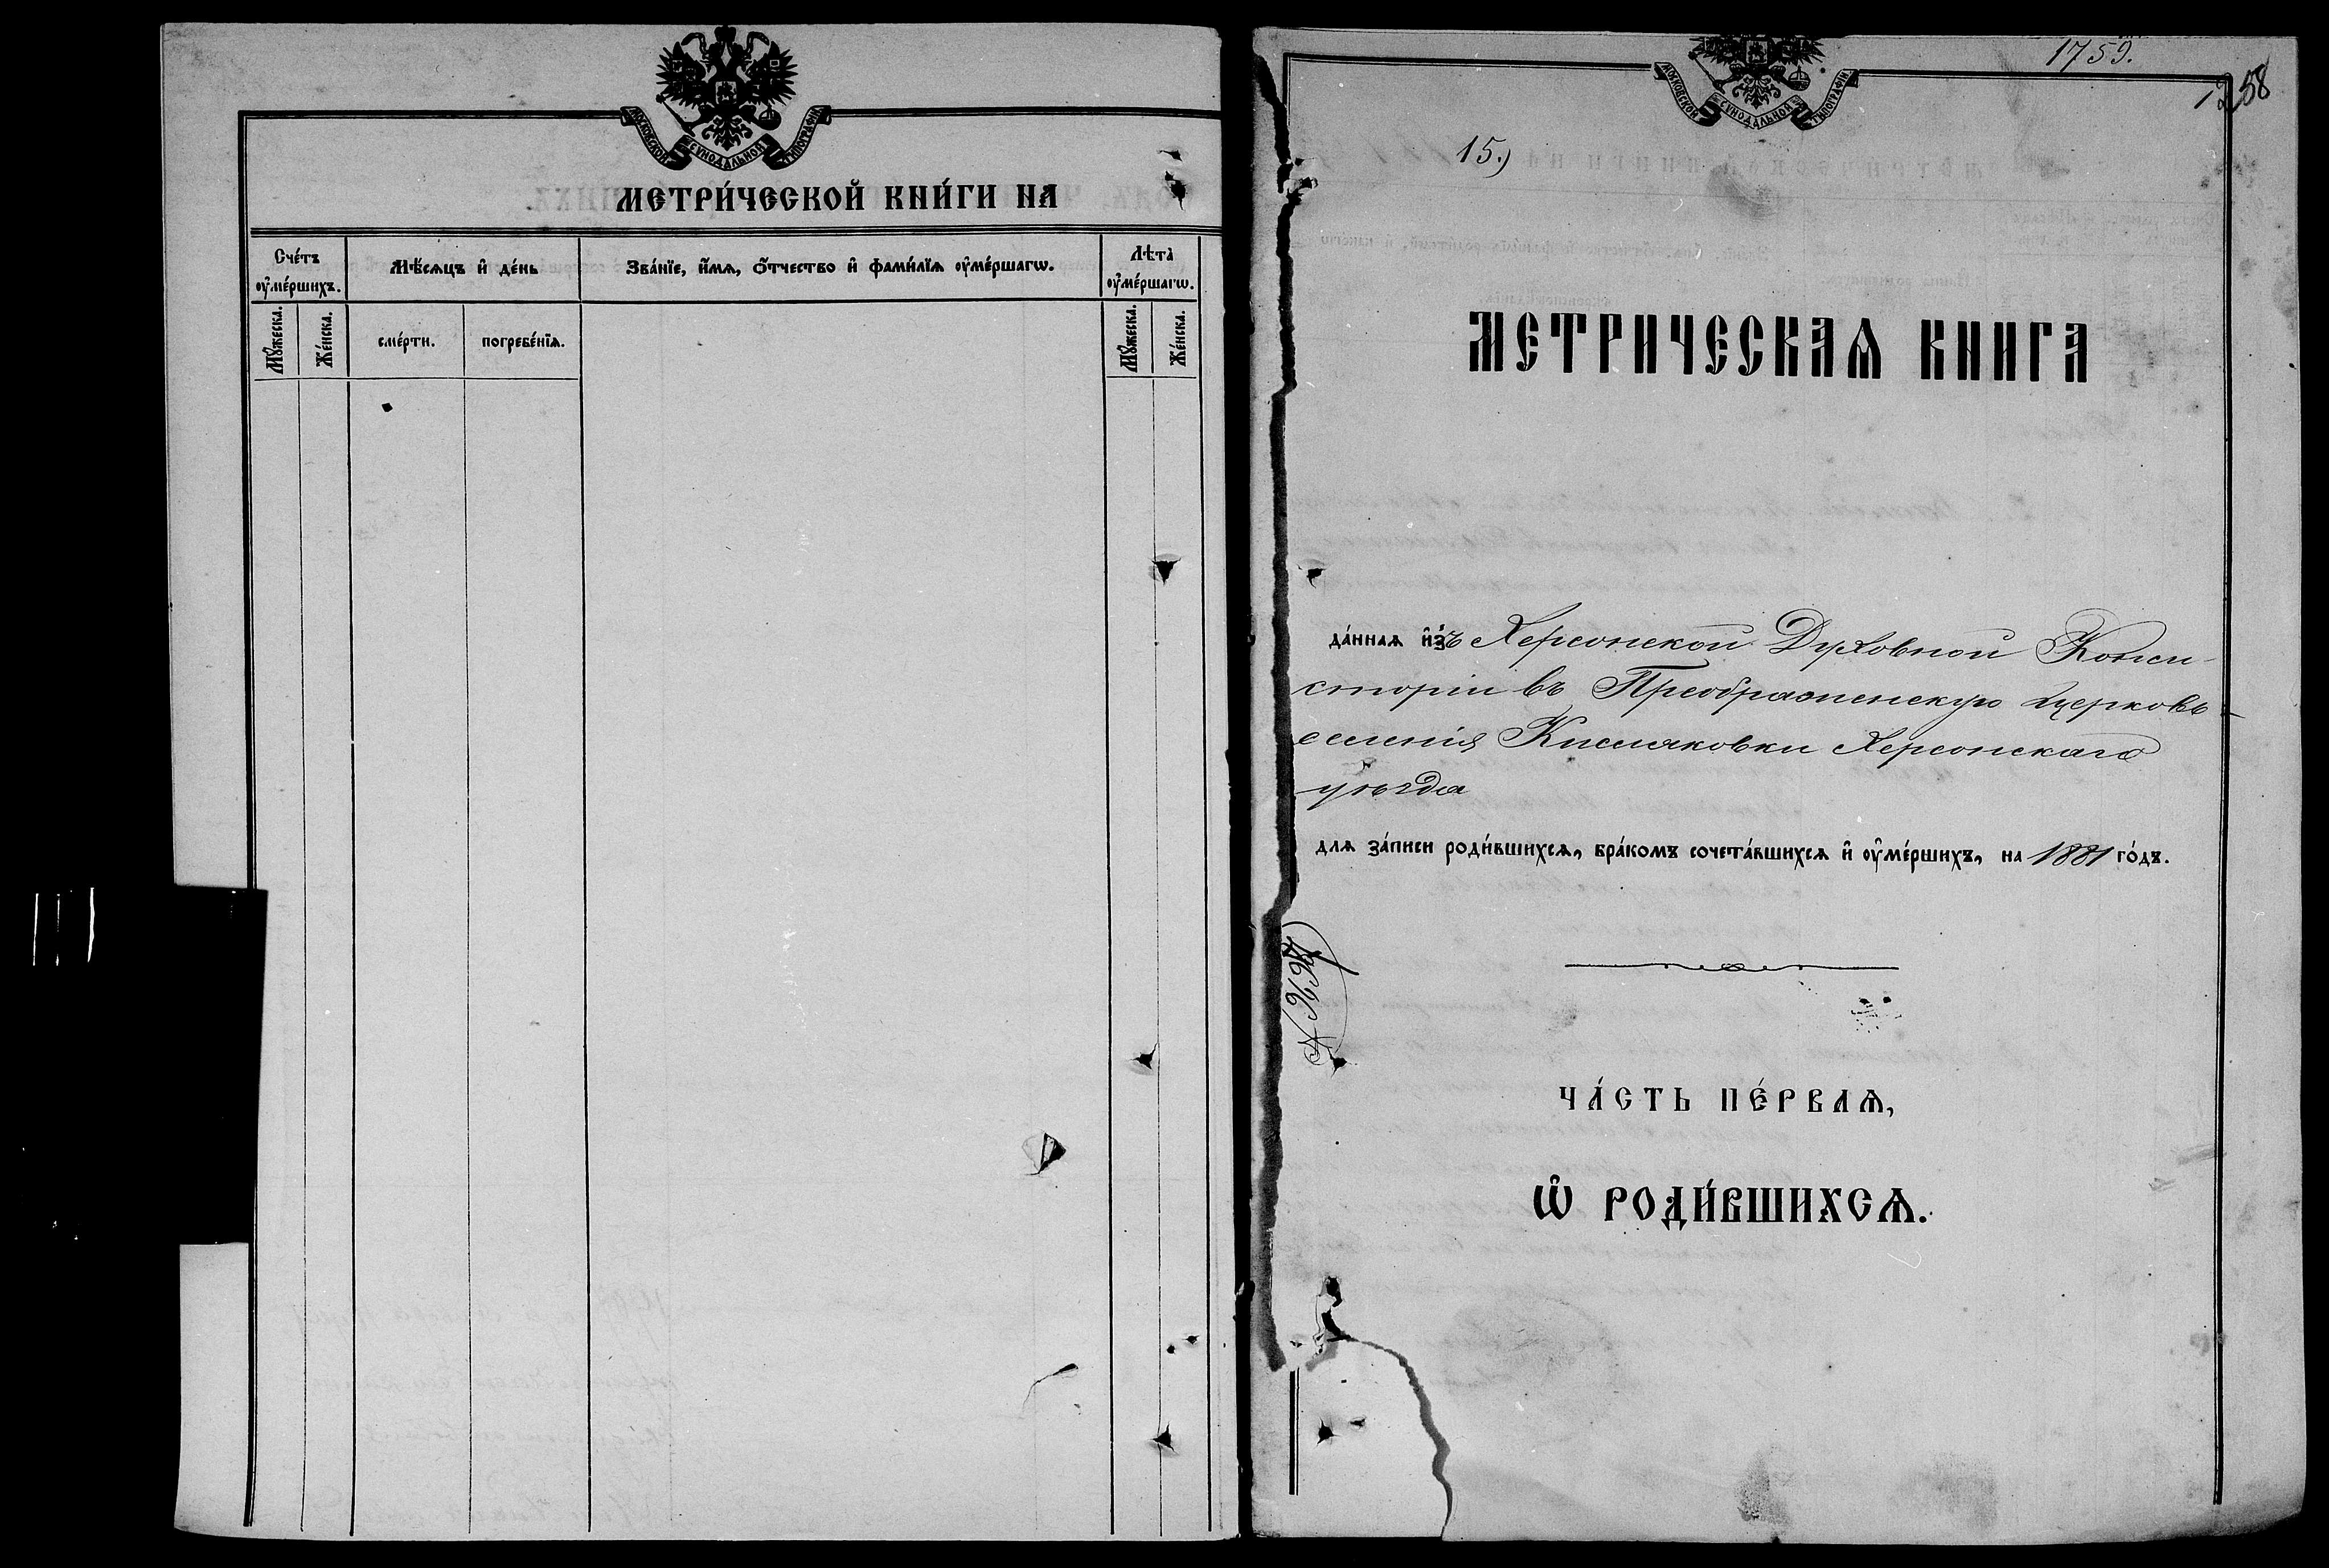 МОСКОВСКОЙ СѴНОДАЛЬНОЙ ТѴПОГРАФІИ
МЕТРИ́ЧЕСКОЙ КНИ́ГИ НА
Сче́тъ ᲂу҆ме́ршихъ.
Мѣ́сѧцъ и҆ де́нь
Зва́нїе, и҆́мѧ, ѻ҆́тчество и҆ фами́лїѧ ᲂу҆ме́ршагѡ.
Лѣта̀ ᲂу҆ме́ршагѡ.
Мꙋ́жеска.
Же́нска.
сме́рти.
погребе́нїѧ.
Мꙋ́жеска.
Же́нска.
МОСКОВСКОЙ СѴНОДАЛЬНОЙ ТѴПОГРАФІИ
1759.
258
15.)
МЕТРИЧЕСКАѦ КНИГА
да́ннаѧ и҆зъ Херсонской Духовной Конси-
сторіи въ Преображенскую церковь
селенія Кисляковки Херсонскаго
уѣзда
длѧ за́писи роди́вшихсѧ, бра́комъ сочета́вшихсѧ и҆ ᲂу҆ме́ршихъ, на 1881 го́дъ.
ЧА́СТЬ ПЕ́РВАѦ,
Ѡ҆ РОДИ́ВШИХСѦ.